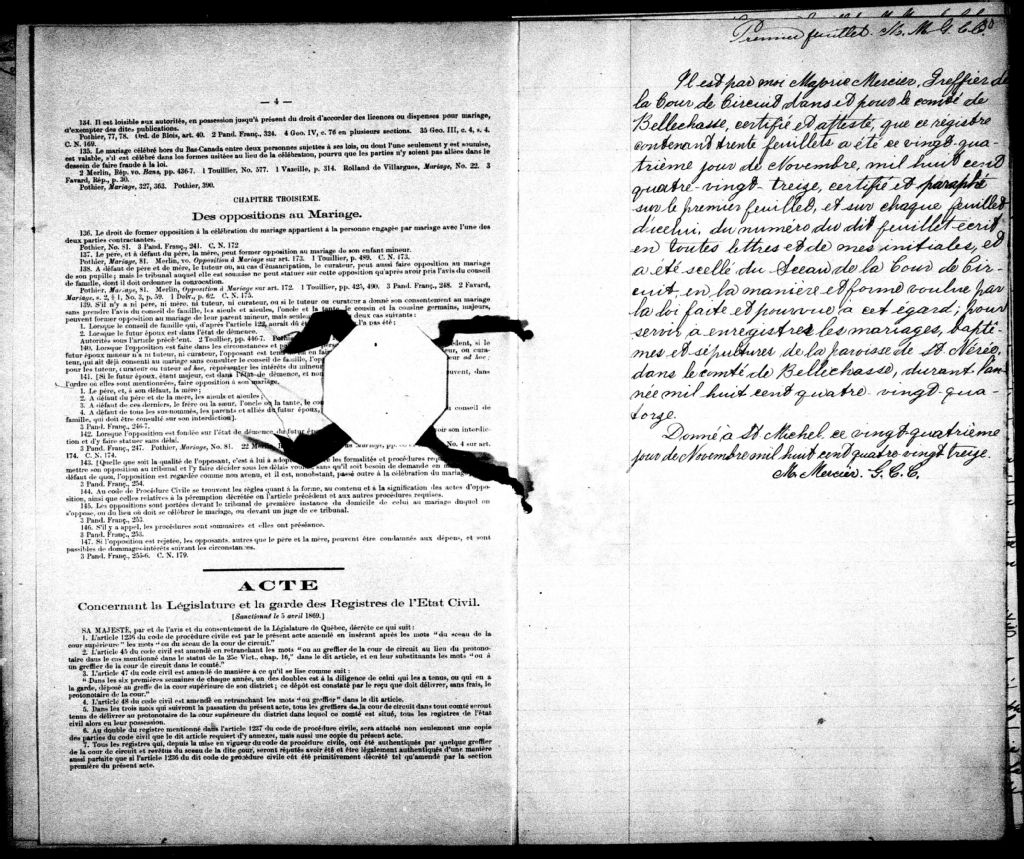 — 4 —
134. Il est loisible aux autorités, en possession jusqu'à présent du droit d'accorder des licences ou dispenses pour mariage,
d'exempter des dites publications.
Pothier, 77, 78. Ord. de Blois, art. 40. 2 Pand. Franç., 324. 4 Geo. IV, c. 76 en plusieurs sections. 35 Geo. III, c. 4, s. 4.
C. N. 169.
135. Le mariage célébré hors du Bas-Canada entre deux personnes sujettes à ses lois, ou dont l'une seulement y est soumise,
est valable, s'il est célébré dans les formes usitées au lieu de la célébration, pourvu que les parties n'y soient pas allées dans le
dessein de faire fraude à la loi.
2 Merlin, Rép. vo. Bans, pp. 436-7. 1 Touillier, No. 577. 1 Vazeille, p. 314. Rolland de Villargues, Mariage, No. 22. 3
Favard, Rép., p. 30.
Pothier, Mariage, 327, 363. Pothier, 390.
CHAPITRE TROISIEME.
Des oppositions au Mariage.
136. Le droit de former opposition à la célébration du mariage appartient à la personne engagée par mariage avec l'une des
deux parties contractantes.
Pothier, No. 81. 3 Pand. Franç., 241. C. N. 172
137. Le père, et à défaut du père, la mère, peut former opposition au mariage de son enfant mineur.
Pothier, Mariage, 81. Merlin, vo. Opposition à Mariage sur art. 173. 1 Touillier, p. 489. C. N. 173.
138. A défaut de père et de mère, le tuteur ou, au cas d'émancipation, le curateur, peut aussi faire opposition au mariage
de son pupille; mais le tribunal auquel elle est soumise ne peut statuer sur cette opposition qu'après avoir pris l'avis du conseil
de famille, dont il doit ordonner la convocation.
Pothier, Mariage, 81. Merlin, Opposition à Mariage sur art. 172. 1 Touillier, pp. 425, 490. 3 Pand. Franç., 248. 2 Favard,
Mariage, s. 2, § 1, No. 3, p. 59. 1 Delv., p. 62. C. N. 175.
139. S'il n'y a ni père, ni mère, ni tuteur, ni curateur, ou si le tuteur ou curateur a donné son consentement au mariage
sans prendre l'avis du conseil de famille, les aïeuls et aïeules, l'oncle et la tante, le cousin et la cousine germains, majeurs,
peuvent former opposition au mariage de leur parent mineur, mais seulement deux cas suivants:
1. Lorsque le conseil de famille qui, d'après l'article 122, aurait dû l'a pas été;
2. Lorsque le futur époux est dans l'état de démence.
Autorités sous l'article précédent. 2 Toullier, pp. 446-7.
140. Lorsque l'opposition est faite dans les circonstances et si le
futur époux mineur n'a ni tuteur, ni curateur, l'opposant est en faire eur, ou cura-
teur, qui ait déjà consenti au mariage sans consulter le conseil de famille, l'op ur ad hoc;
pour les tuteur, curateur ou tuteur ad hoc, représenter les intérêts du mineur
141. [Si le futur époux, étant majeur, est dans l'état de démence, et non uvent, dans
l'ordre où elles sont mentionnées, faire opposition à son mariage,
1. Le père, et, à son défaut, la mère;
2. A défaut du père et de la mère, les aïeuls et aïeules;
3. A défaut de ces derniers, le frère ou la sœur, l'oncle ou la tante, le cou
4. A défaut de tous les sus-nommés, les parents et alliés du futur époux, conseil de
famille, qui doit être consulté sur son interdiction].
3 Pand. Franç., 246-7.
142. Lorsque l'opposition est fondée sur l'état de démence du futur ép son interdic-
tion et d'y faire statuer sans délai.
3 Pand. Franç., 247. Pothier, Mariage, No. 81. No. 4 sur art.
174. C. N. 174.
143. [Quelle que soit la qualité de l'opposant, c'est à lui à adop les formalités et procédures requ
mettre son opposition au tribunal et l'y faire décider sous les délais voulus sans qu'il soit besoin de demande en main
défaut de quoi, l'opposition est regardée comme non avenu, et il est, nonobstant, passé outre à la célébration du mariage
3 Pand. Franç., 254.
144. Au code de Procédure Civile se trouvent les règles quant à la forme, au contenu et à la signification des actes d'oppo-
sition, ainsi que celles relatives à la péremption décrétée en l'article précédent et aux autres procédures requises.
145. Les oppositions sont portées devant le tribunal de première instance du domicile de celui au mariage duquel on
s'oppose, ou du lieu où doit se célébrer le mariage, ou devant un juge de ce tribunal.
3 Pand. Franç., 253.
146. S'il y a appel, les procédures sont sommaires et elles ont préséance.
3 Pand. Franç., 253.
147. Si l'opposition est rejetée, les opposants, autres que le père et la mère, peuvent être condamnés aux dépens, et sont
passibles de dommages-intérêts suivant les circonstances.
3 Pand. Franç., 255-6. C. N. 179.
ACTE
Concernant la Législature et la garde des Registres de l'Etat Civil.
[Sanctionné le 5 avril 1869.]
SA MAJESTÉ, par et de l'avis et du consentement de la Législature de Québec, décrète ce qui suit:
1. L'article 1236 du code de procédure civile est par le présent acte amendé en insérant après les mots "du sceau de la
cour supérieure" les mots "ou du sceau de la cour de circuit."
2. L'article 45 du code civil est amendé en retranchant les mots "ou au greffier de la cour de circuit au lieu du protono-
taire dans le cas mentionné dans le statut de la 25e Vict., chap. 16," dans le dit article, et en leur substituants les mots "ou à
un greffier de la cour de circuit dans le comté."
3. L'article 47 du code civil est amendé de manière à ce qu'il se lise comme suit:
"Dans les six premières semaines de chaque année, un des doubles est à la diligence de celui qui les a tenus, ou qui en a
la garde, déposé au greffe de la cour supérieure de son district; ce dépôt est constaté par le reçu que doit délivrer, sans frais, le
protonotaire de la cour."
4. L'article 48 du code civil est amendé en retranchant les mots "ou greffier" dans le dit article.
5. Dans les trois mois qui suivront la passation du présent acte, tous les greffiers de la cour de circuit dans tout comté seront
tenus de délivrer au protonotaire de la cour supérieure du district dans lequel ce comté est situé, tous les registres de l'état
civil alors en leur possession.
6. Au double du registre mentionné dans l'article 1237 du code de procédure civile, sera attaché non seulement une copie
des parties du code civil que le dit article requiert d'y annexer, mais aussi une copie du présent acte.
7. Tous les registres qui, depuis la mise en vigueur du code de procédure civile, ont été authentiqués par quelque greffier
de la cour de circuit et revêtus du sceau de la dite cour, seront réputés avoir été et être légalement authentiqués d'une manière
aussi parfaite que si l'article 1236 du dit code de procédure civile eût été primitivement décrété tel qu'amendé par la section
première du présent acte.
Premier feuillet. M. M. G. C. C.
Il est par moi Majorie Mercier, Greffier de
la Cour de Circuit dans et pour le comté de
Bellechasse, certifié et attesté, que ce registre
contenant trente feuillets a été ce vingt-qua-
trième jour de Novembre, mil huit cent
quatre-vingt-treize, certifié et paraphé
sur le premier feuillet, et sur chaque feuillet
d'icelui, du numéro du dit feuillet écrit
en toutes lettres et de mes initiales, et
a été scellé du Sceau de la Cour de Cir-
cuit, en la manière et forme voulue par
la loi faite et pourvue à cet égard; pour
servir à enregistrer les mariages, baptê-
mes et sépultures de la paroisse de St Nérée,
dans le comté de Bellechasse, durant l'an-
née mil huit cent quatre-vingt-qua-
torze.
Donné à St Michel, ce vingt-quatrième
jour de Novembre mil huit cent quatre vingt treize.
M. Mercier. G. C. C.